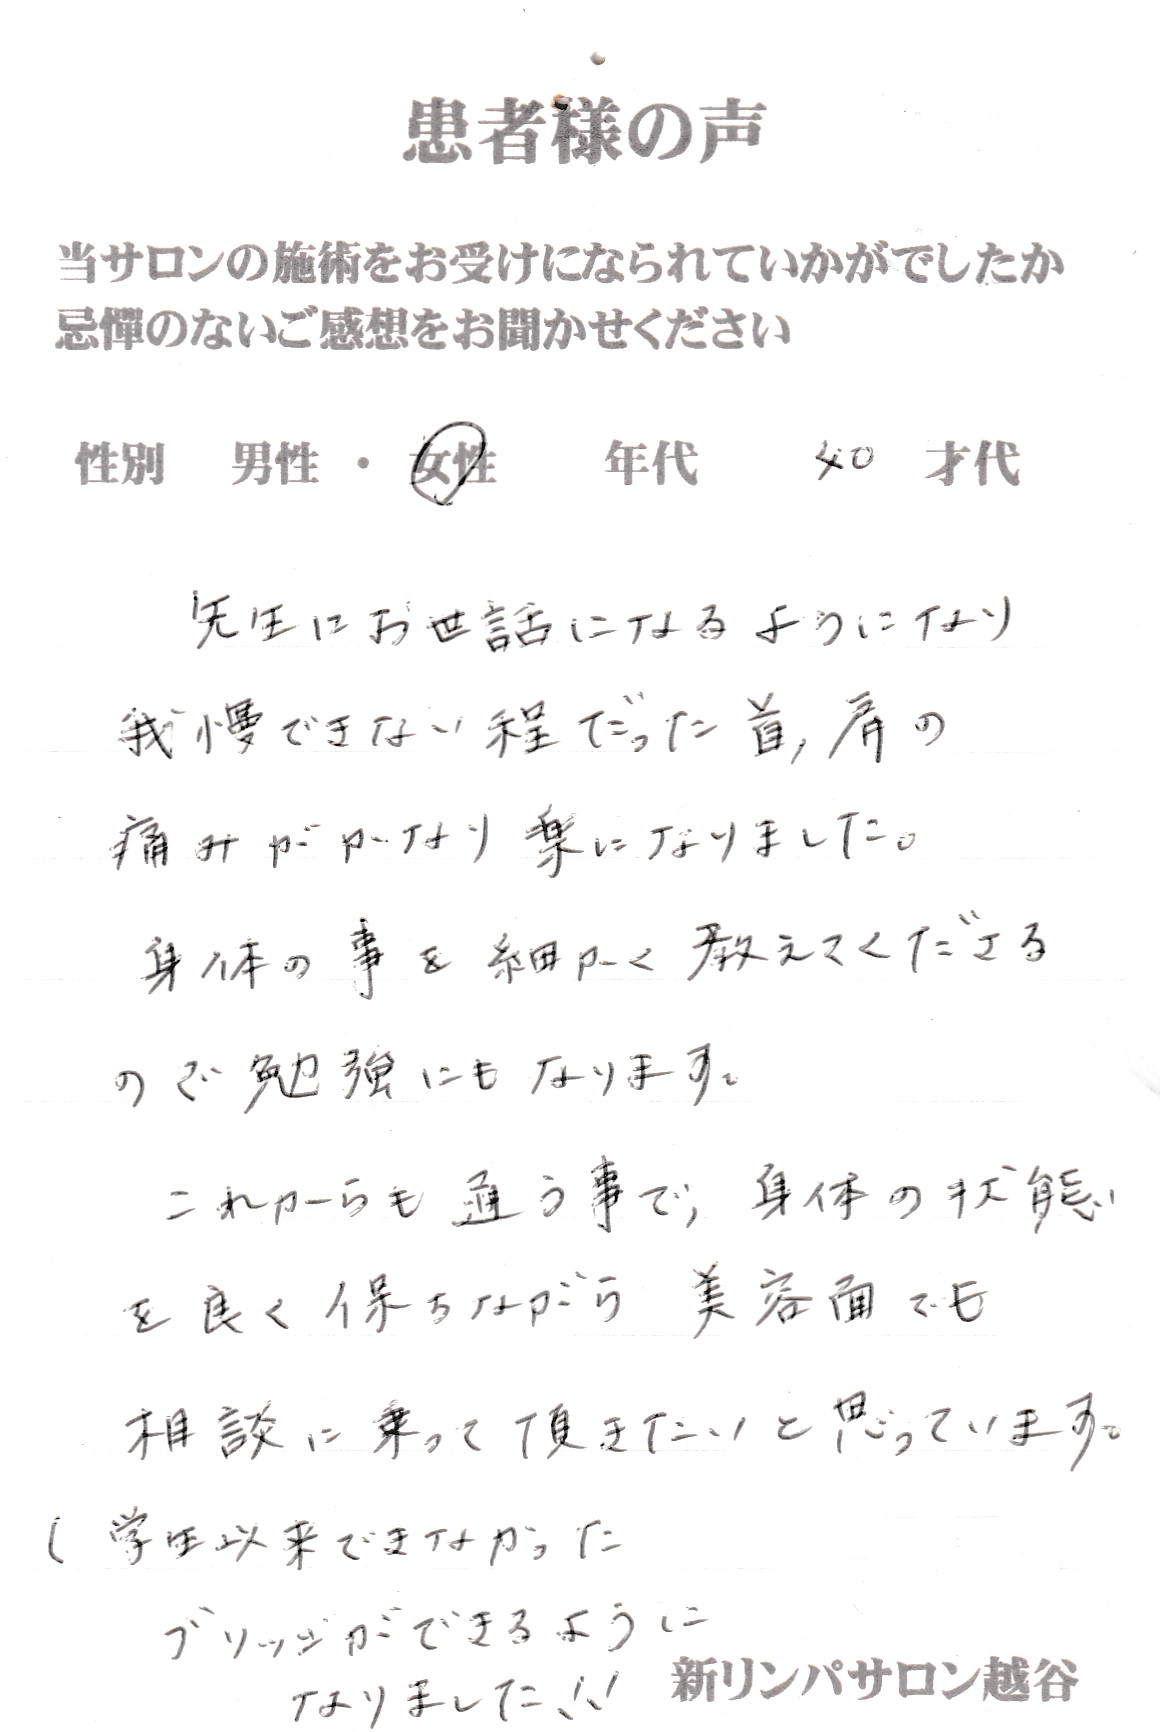 患者様の声
当サロンの施術をお受けになられていかがでしたか
忌憚のないご感想をお聞かせください
性別 男性・女性 年代 40 才代
先生にお世話になるようになり
我慢できない程だった首,肩の
痛みがかなり楽になりました。
身体の事を細かく教えてくださる
ので勉強にもなります。
これからも通う事で,身体の状態
を良く保ちながら美容面でも
相談に乗って頂きたいと思っています。
( 学生以来できなかった
ブリッジができるように
なりました!!
新リンパサロン越谷